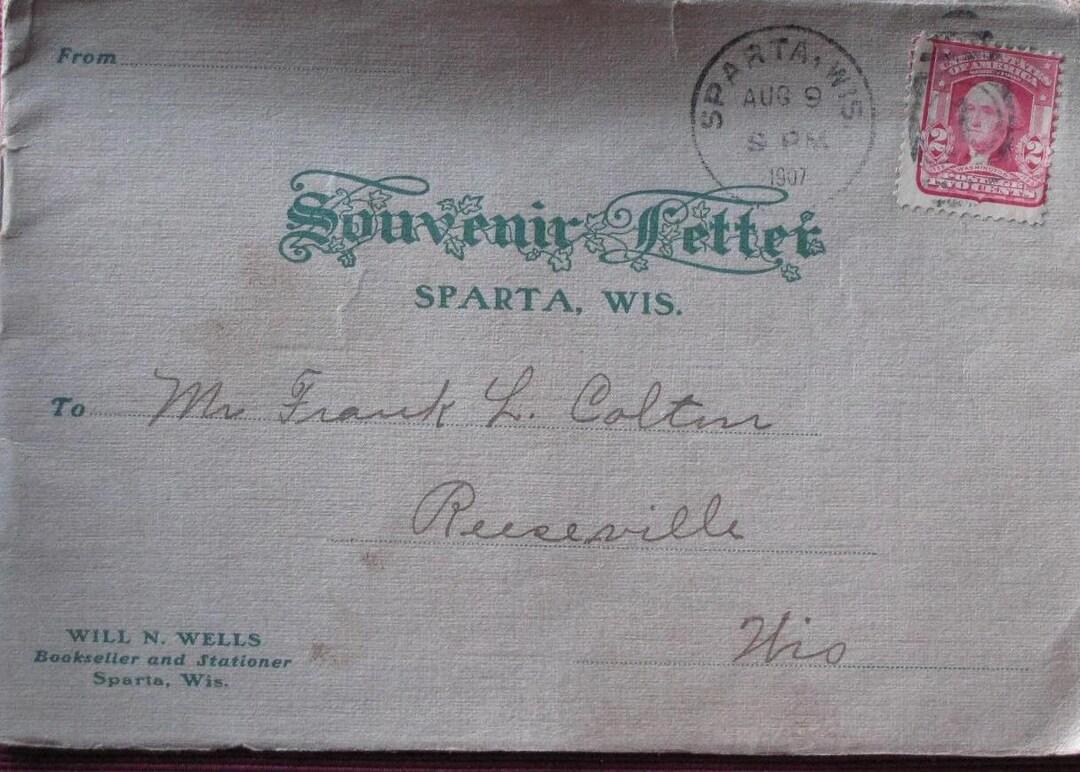 From
SPARTA, WIS.
AUG 9
8 PM
1907
UNITED STATES
OF AMERICA
2 2
WASHINGTON
TWO CENTS
Souvenir Letter
SPARTA, WIS.
To Mr Frank L. Colton
Reeseville
Wis
WILL N. WELLS
Bookseller and Stationer
Sparta, Wis.